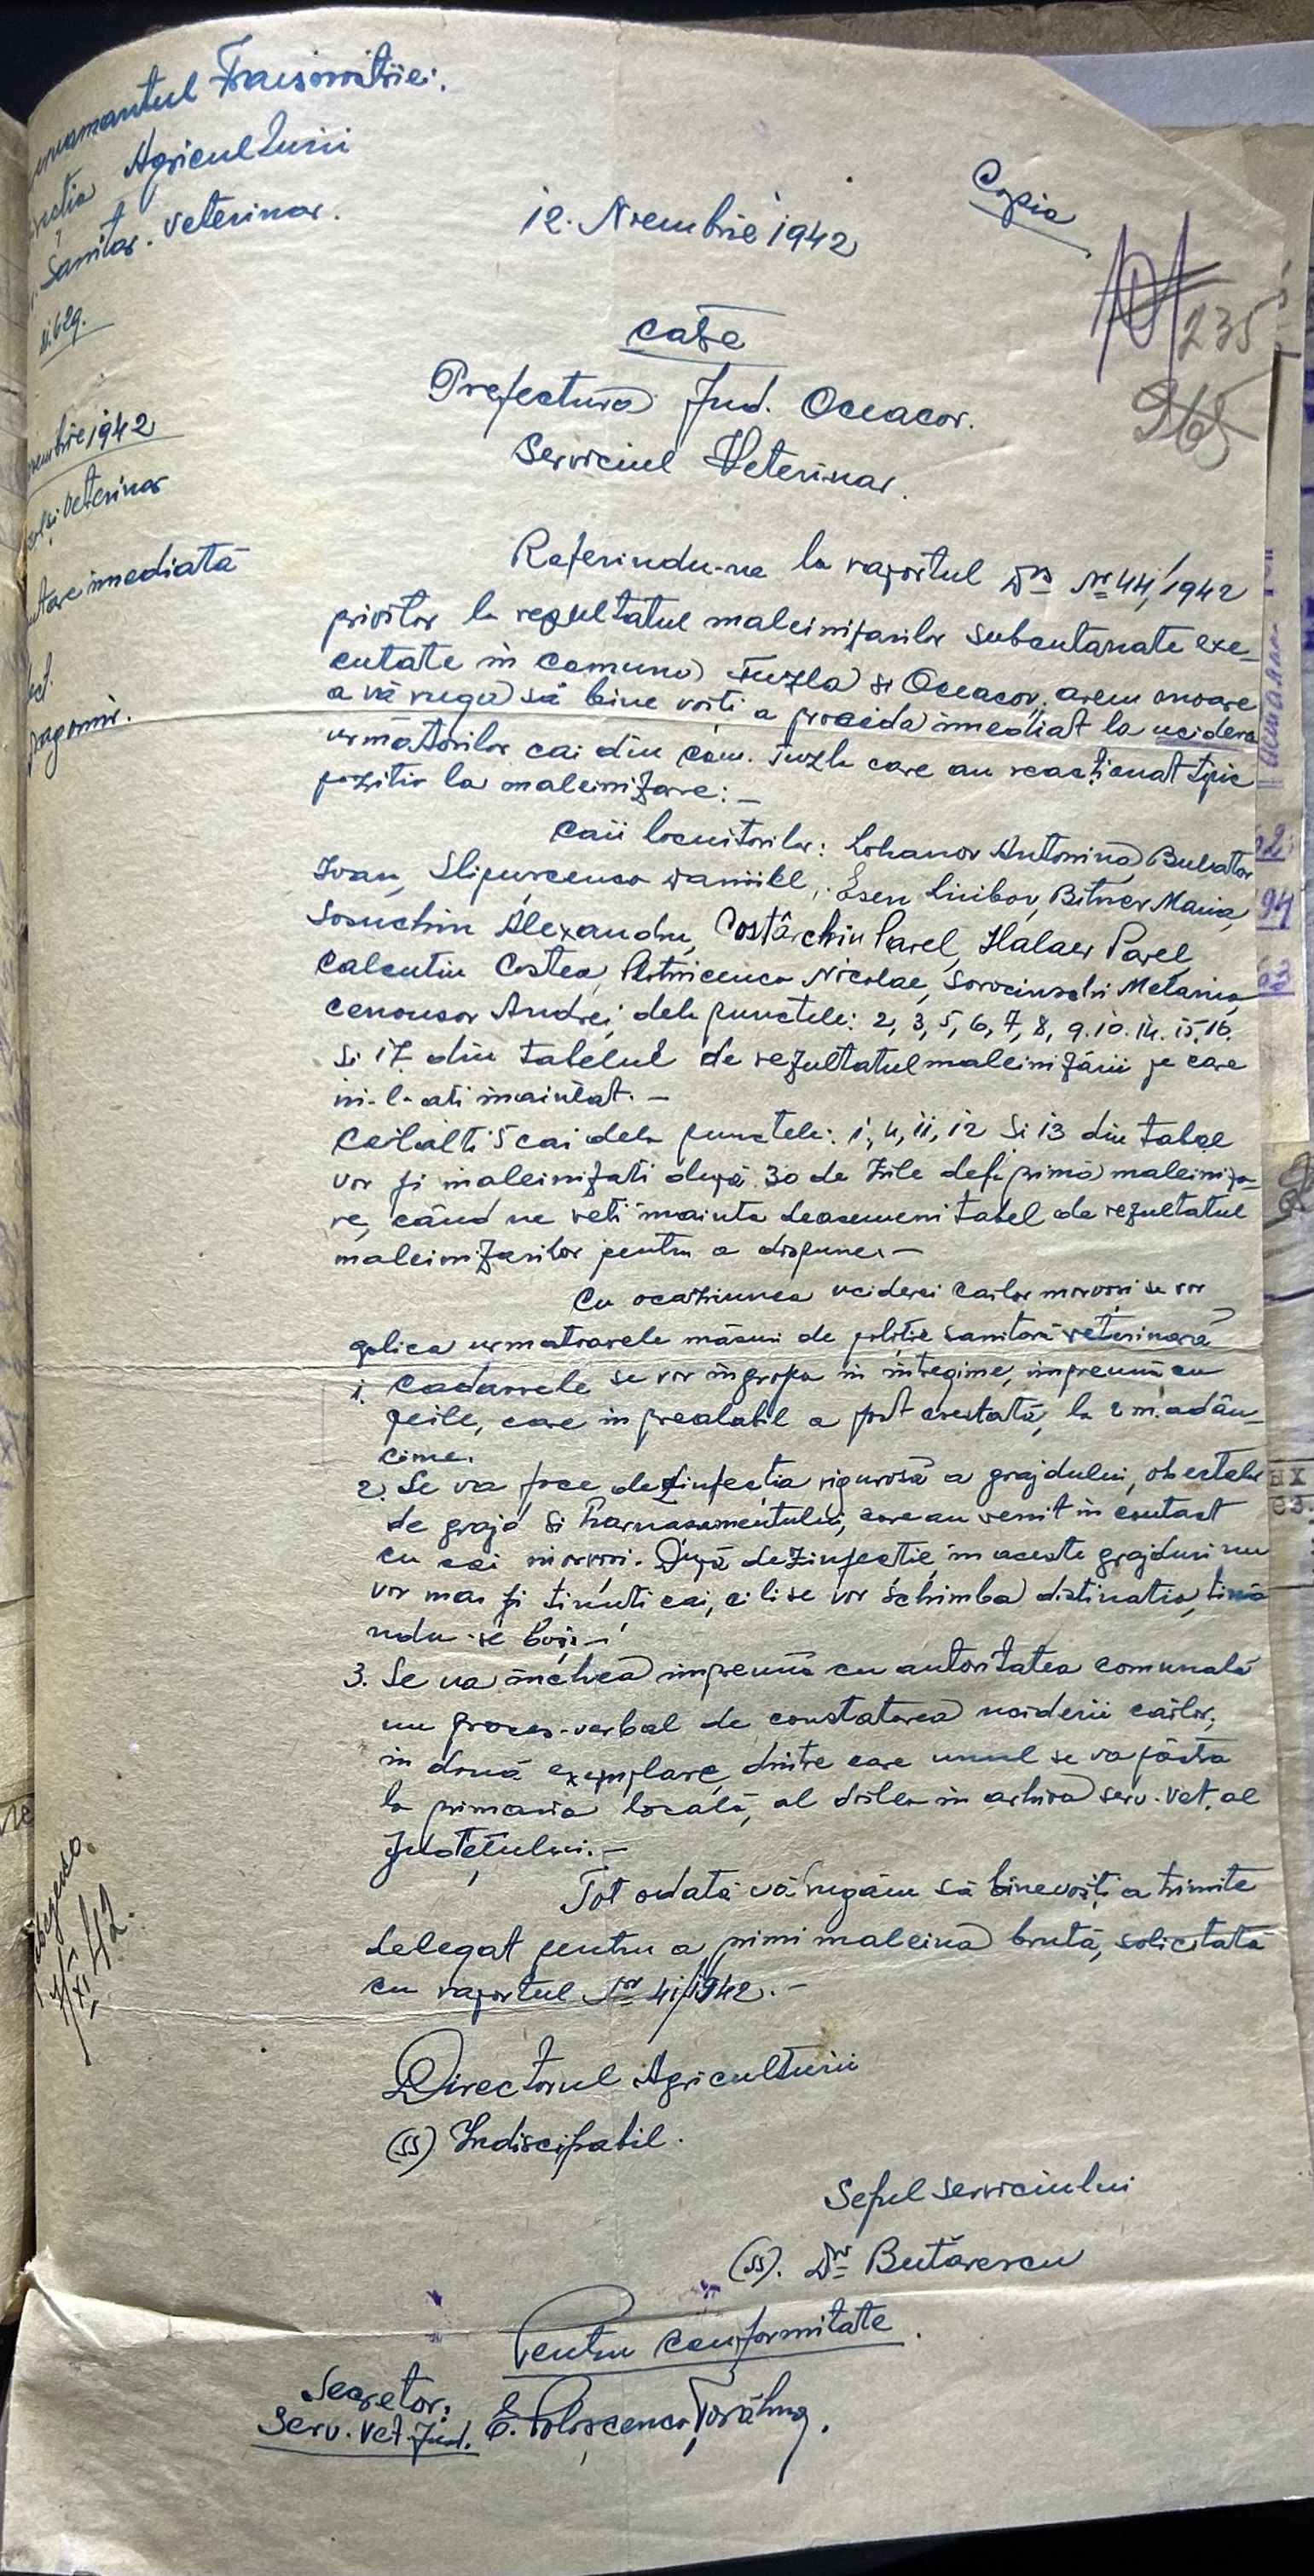 Transnistriei.
Agriculturii
Sanitar. Veterinar.
Copie
12. Noembrie 1942
235
965
Către
Prefectura Jud. Oceacov.
Serviciul Veterinar.
embrie 1942
și Veterinar
imediată
Referindu-ne la raportul Dvs Nr 44/1942
privitor la rezultatul maleinizarilor subcutanate exe-
cutate in comuna Tuzla si Oceacov, avem onoare
a vă ruga să bine voiți a proceda imediat la uciderea
următorilor cai din com. Tuzla care au reacționat tipic
pozitiv la maleinizare: -
Caii locuitorilor: Lohanov Antonina
Ivan, Slipurcenco Esen Liubov, Bitner Maria,
Sosuchin Alexandru, Costârchin Pavel, Halaev Pavel,
Calentin Costea, Plotnicenco Nicolae, Sorocinschi Melania,
Andrei, dela punctele: 2, 3, 5, 6, 7, 8, 9. 10. 14. 15. 16.
si 17. din tabelul de rezultatul maleinizării pe care
ni-l-ati inaintat. -
Ceilalti 5 cai dela punctele: 1, 4, 11, 12 si 13 din tabel
vor fi maleinizati după 30 de zile dela prima maleiniza-
re, când ne veti inainta deasemeni tabel de rezultatul
maleinizarilor pentru a dispune. -
Cu ocaziunea uciderei cailor morvosi se vor
aplica urmatoarele măsuri de politie sanitară veterinară
1. Cadavrele se vor ingropa in intregime, impreună cu
peile, care in prealabil a fost crestată, la 2 m. adân-
cime.
2. Se va face dezinfecția rigurosă a grajdului, obiectelor
de grajd si harnasamentului, care au venit in contact
cu cai morvosi. După dezinfectie in aceste grajduri nu
vor mai fi tinuti cai, ci li se vor schimba distinatia,
ndu-se boi. -
3. Se va incheia impreună cu autoritatea comunală
un proces-verbal de constatarea uciderii cailor,
in două exemplare, dintre care unul se va păstra
la primaria locală, al doilea in arhiva serv. vet. al
Județului. -
Tot odată vă rugăm să binevoiți a trimite
delegat pentru a primi maleina brută, solicitată
cu raportul Nr 41/1942. -
Directorul Agriculturii
(ss) Indiscifrabil.
Seful serviciului
(ss). Dr Butărescu
Pentru Conformitate.
Secretar:
Serv. Vet. Jud.